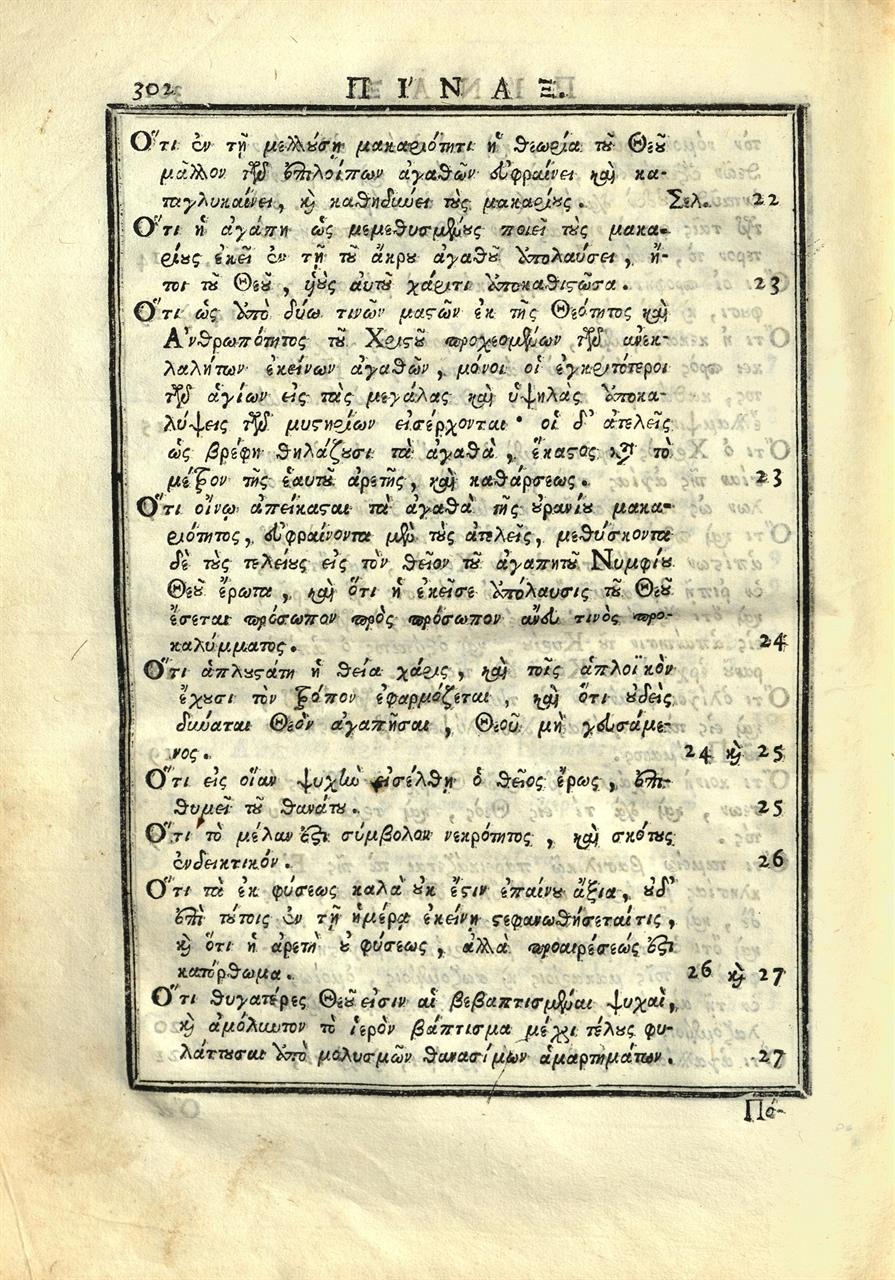 302 ΠΙΝΑΞ.
Ὅτι ἐν τῇ μελλούσῃ μακαριότητι ἡ θεωρία τοῦ Θεοῦ
μᾶλλον τῶν ἐπιλοίπων ἀγαθῶν εὐφραίνει καὶ κα-
ταγλυκαίνει, καὶ καθηδύνει τοὺς μακαρίους. Σελ. 22
Ὅτι ἡ ἀγάπη ὡς μεμεθυσμένους ποιεῖ τοὺς μακα-
ρίους ἐκεῖ ἐν τῇ τοῦ ἄκρου ἀγαθοῦ ἀπολαύσει, ἤ-
τοι τοῦ Θεοῦ, υἱοὺς αὐτοῦ χάριτι ἀποκαθιστῶσα. 23
Ὅτι ὡς ἀπὸ δύω τινῶν μαστῶν ἐκ τῆς Θεότητος καὶ
Ἀνθρωπότητος τοῦ Χριστοῦ προχεομένων τῶν ἀνεκ-
λαλήτων ἐκείνων ἀγαθῶν, μόνοι οἱ ἐγκριτότεροι
τῶν ἁγίων εἰς τὰς μεγάλας καὶ ὑψηλὰς ἀποκα-
λύψεις τῶν μυστηρίων εἰσέρχονται· οἱ δ' ἀτελεῖς
ὡς βρέφη θηλάζουσι τὰ ἀγαθὰ, ἕκαστος κατὰ τὸ
μέτρον τῆς ἑαυτοῦ ἀρετῆς, καὶ καθάρσεως. 23
Ὅτι οἴνῳ ἀπείκασται τὰ ἀγαθὰ τῆς οὐρανίου μακα-
ριότητος, εὐφραίνοντα μὲν τοὺς ἀτελεῖς, μεθύσκοντα
δὲ τοὺς τελείους εἰς τὸν θεῖον τοῦ ἀγαπητοῦ Νυμφίου
Θεοῦ ἔρωτα, καὶ ὅτι ἡ ἐκεῖσε ἀπόλαυσις τοῦ Θεοῦ
ἔσεται πρόσωπον πρὸς πρόσωπον ἄνευ τινὸς προ-
καλύμματος. 24
Ὅτι ἁπλουστάτη ἡ θεία χάρις, καὶ τοῖς ἁπλοϊκὸν
ἔχουσι τὸν τρόπον ἐφαρμόζεται, καὶ ὅτι οὐδεὶς
δύναται Θεὸν ἀγαπῆσαι, Θεοῦ μὴ γευσάμε-
νος. 24 καὶ 25
Ὅτι εἰς οἵαν ψυχὴν εἰσέλθῃ ὁ θεῖος ἔρως, ἐπι-
θυμεῖ τοῦ θανάτου. 25
Ὅτι τὸ μέλαν ἐστὶ σύμβολον νεκρότητος, καὶ σκότους
ἐνδεικτικόν. 26
Ὅτι τὰ ἐκ φύσεως καλὰ οὐκ ἔστιν ἐπαίνου ἄξια, οὐδ'
ἐπὶ τούτοις ἐν τῇ ἡμέρᾳ ἐκείνῃ στεφανωθήσεταί τις,
καὶ ὅτι ἡ ἀρετὴ οὐ φύσεως, ἀλλὰ προαιρέσεώς ἐστι
κατόρθωμα. 26 καὶ 27
Ὅτι θυγατέρες Θεοῦ εἰσιν αἱ βεβαπτισμέναι ψυχαὶ,
καὶ ἀμόλυντον τὸ ἱερὸν βάπτισμα μέχρι τέλους φυ-
λάττουσαι ἀπὸ μολυσμῶν θανασίμων ἁμαρτημάτων. 27
Πό-